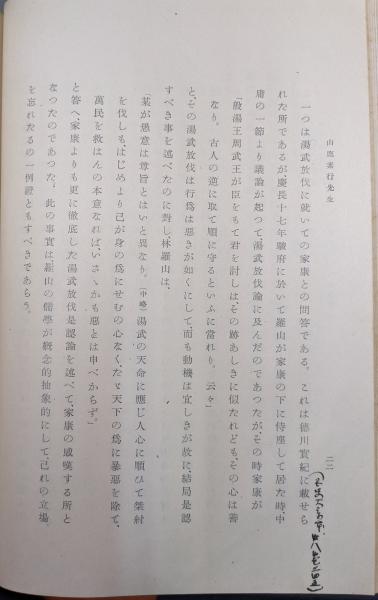 山鹿素行先生
二二
一つは湯武放伐に就いての家康との問答である。これは徳川實紀に載せら
れた所であるが、慶長十七年駿府に於いて羅山が家康の下に侍座して居た時、中
庸の一節より議論が起つて、湯武放伐論に及んだのであつたが、その時家康が
「殷湯王周武王が臣をもて君を討しは、その跡あしきに似たれども、その心は善
なり。古人の逆に取て順に守るといふに當れり。云々」
と、その湯武放伐は行爲は惡きが如くにして、而も動機は宜しきが故に、結局是認
すべき事を述べたのに對し、林羅山は、
「某が愚意は尊旨とはいと異なり。(中略)湯武の天命に應じ人心に順ひて桀紂
を伐しも、はじめより己が身の爲にせむの心なく、たゞ天下の爲に暴惡を除て、
萬民を救はんの本意なれば、いさゝかも惡とは申べからず。」
と答へ、家康よりも更に徹底した湯武放伐是認論を述べて、家康の感嘆する所と
なつたのであつた。此の事實は、羅山の儒學が概念的抽象的にして、己れの立場
を忘れたるの一例證ともすべきであらう。